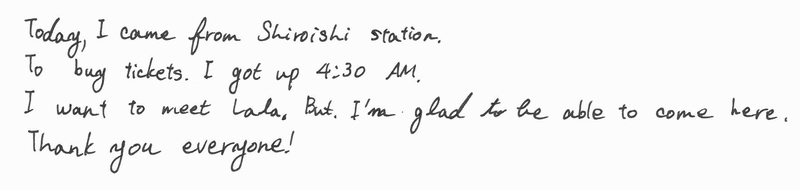 Today, I came from Shiroishi station.
To bug tickets. I got up 4:30 AM.
I want to meet Lala. But. I'm glad to be able to come here.
Thank you everyone!